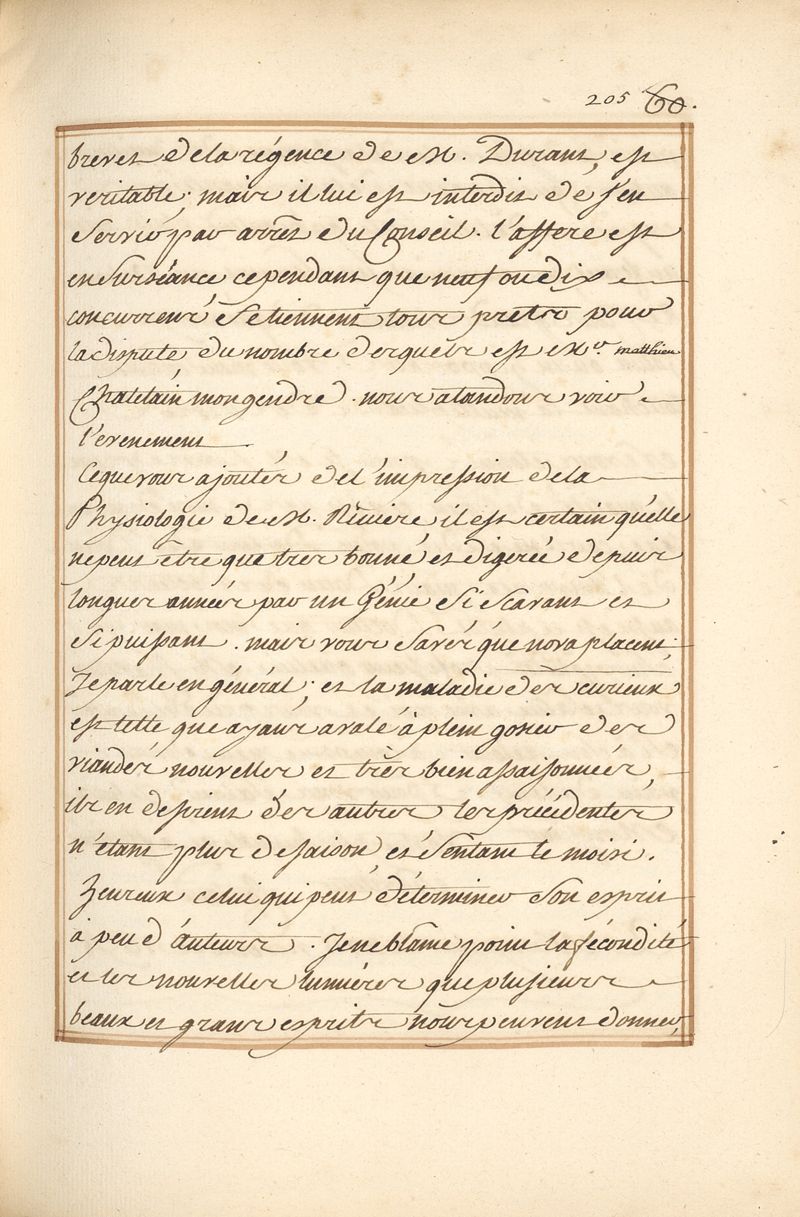 205 60.
brevet de la régence de M. Durant, est
veritable; mais il lui est interdit de s'en
servir par arrêt du Conseil. l'affere est
en surséance cependant que neuf ou dix
concurrens se tiennent tous prets pour
la dispute du nombre desquels est Mr. matthieu
Chatelain mon gendre. nous atandons voir
l'evenement
Ceque vous ajoutés de l'impression dela
Physiologie de M. Riviere il est certain qu'elle
ne peut être que tres bonne et digerée depuis
longues années par un Génie si scavant et
si puissant. mais vous savés que nova placent;
Je parle en général; et la maladie des curieux
est telle que ayant avalé à plein gosier des
viandes nouvelles et très bien assaisonnées,
ils en desirent des autres les précédentes
n'étant plus de saison, et sentant le moisi.
heureux celui qui peut déterminer son esprit
à peu d'auteurs. Je ne blâme point la fécondité
et les nouvelles lumières que plusieurs
beaux et grans esprits nous peuvent donner,